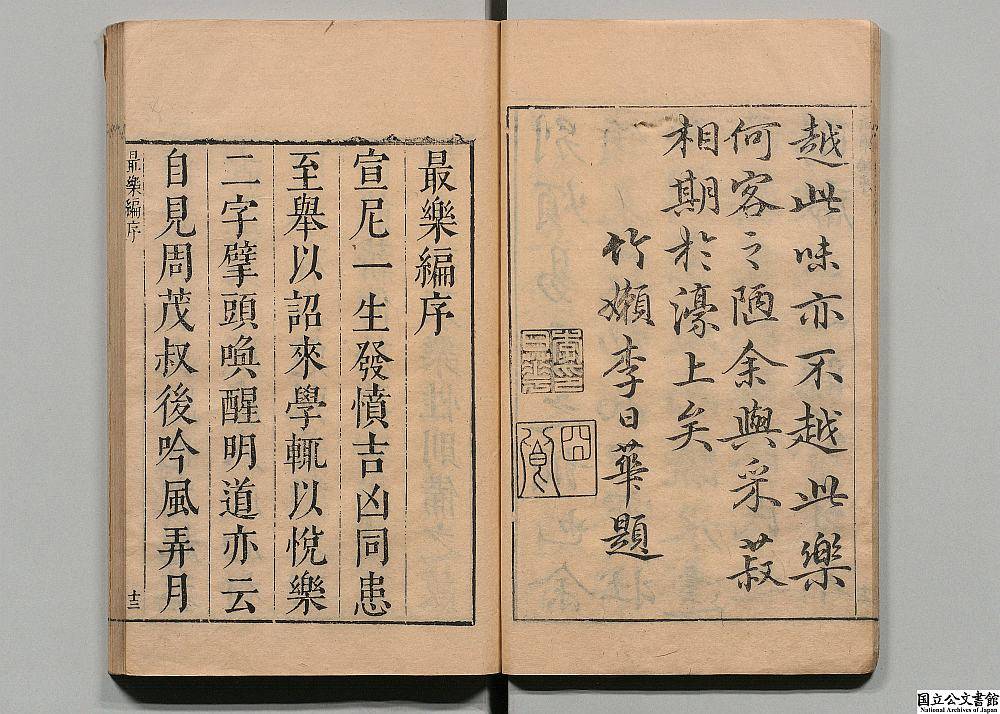 越此味亦不越此樂
何客之陋余與采菽
相期於濠上矣
竹嬾李日華題
最樂編序
宣尼一生發憤吉凶同患
至舉以詔來學輒以悅樂
二字擘頭喚醒明道亦云
自見周茂叔後吟風弄月
最樂編序
十三
国立公文書館
National Archives of Japan